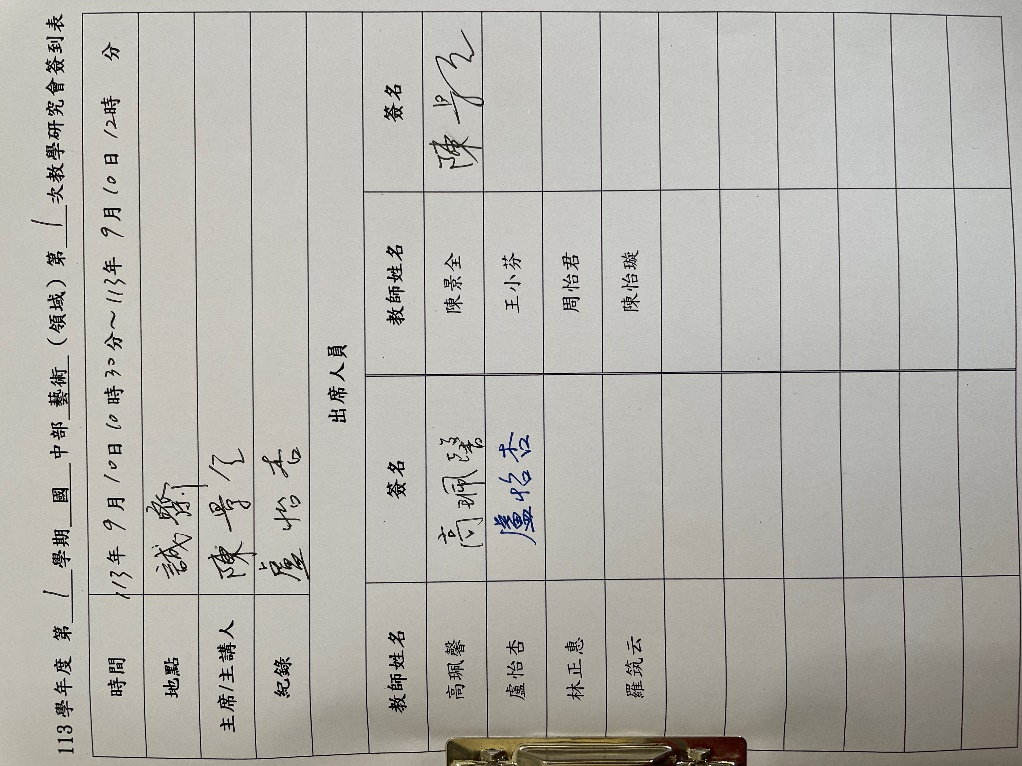 113學年度 第 1 學期 國 中部 藝術 (領域) 第 1 次教學研究會簽到表
時間 113年 9月10日10時30分~113年 9月10日12時 分
地點 誠齋
主席/主講人 陳景全
紀錄 盧怡杏
出席人員
教師姓名 簽名 教師姓名 簽名
高珮馨 高珮馨 陳景全 陳景全
盧怡杏 盧怡杏 王小芬
林正惠 周怡君
羅筑云 陳怡璇